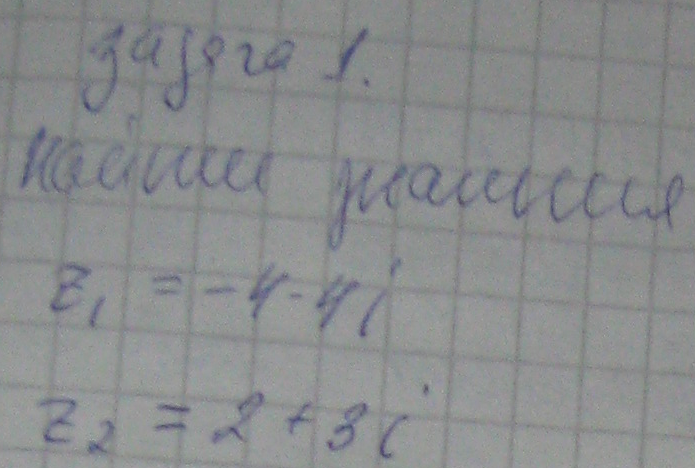 задача 1.
найти значения
z₁ = -4-4i
z₂ = 2+3i